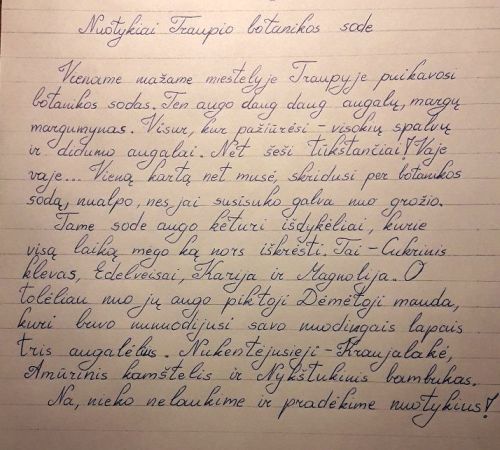 Nuotykiai Traupio botanikos sode
Viename mažame miestelyje Traupyje puikavosi
botanikos sodas. Ten augo daug daug augalų, margų
margumynas. Visur, kur pažiūrėsi - visokių spalvų
ir didumo augalai. Net šeši tūkstančiai! Vaje
vaje... Vieną kartą net musė, skridusi per botanikos
sodą, nualpo, nes jai susisuko galva nuo grožio.
Tame sode augo keturi išdykėliai, kurie
visą laiką mėgo ką nors iškrėsti. Tai - Cukrinis
klevas, Edelveisai, Karija ir Magnolija. O
tolėliau nuo jų augo piktoji Dėmėtoji mauda,
kuri buvo nunuodijusi savo nuodingais lapais
tris augalėlius. Nukentėjusieji - Kraujalakė,
Amūrinis kamštelis ir Nykštukinis bambukas.
Na, nieko nelaukime ir pradėkime nuotykius!